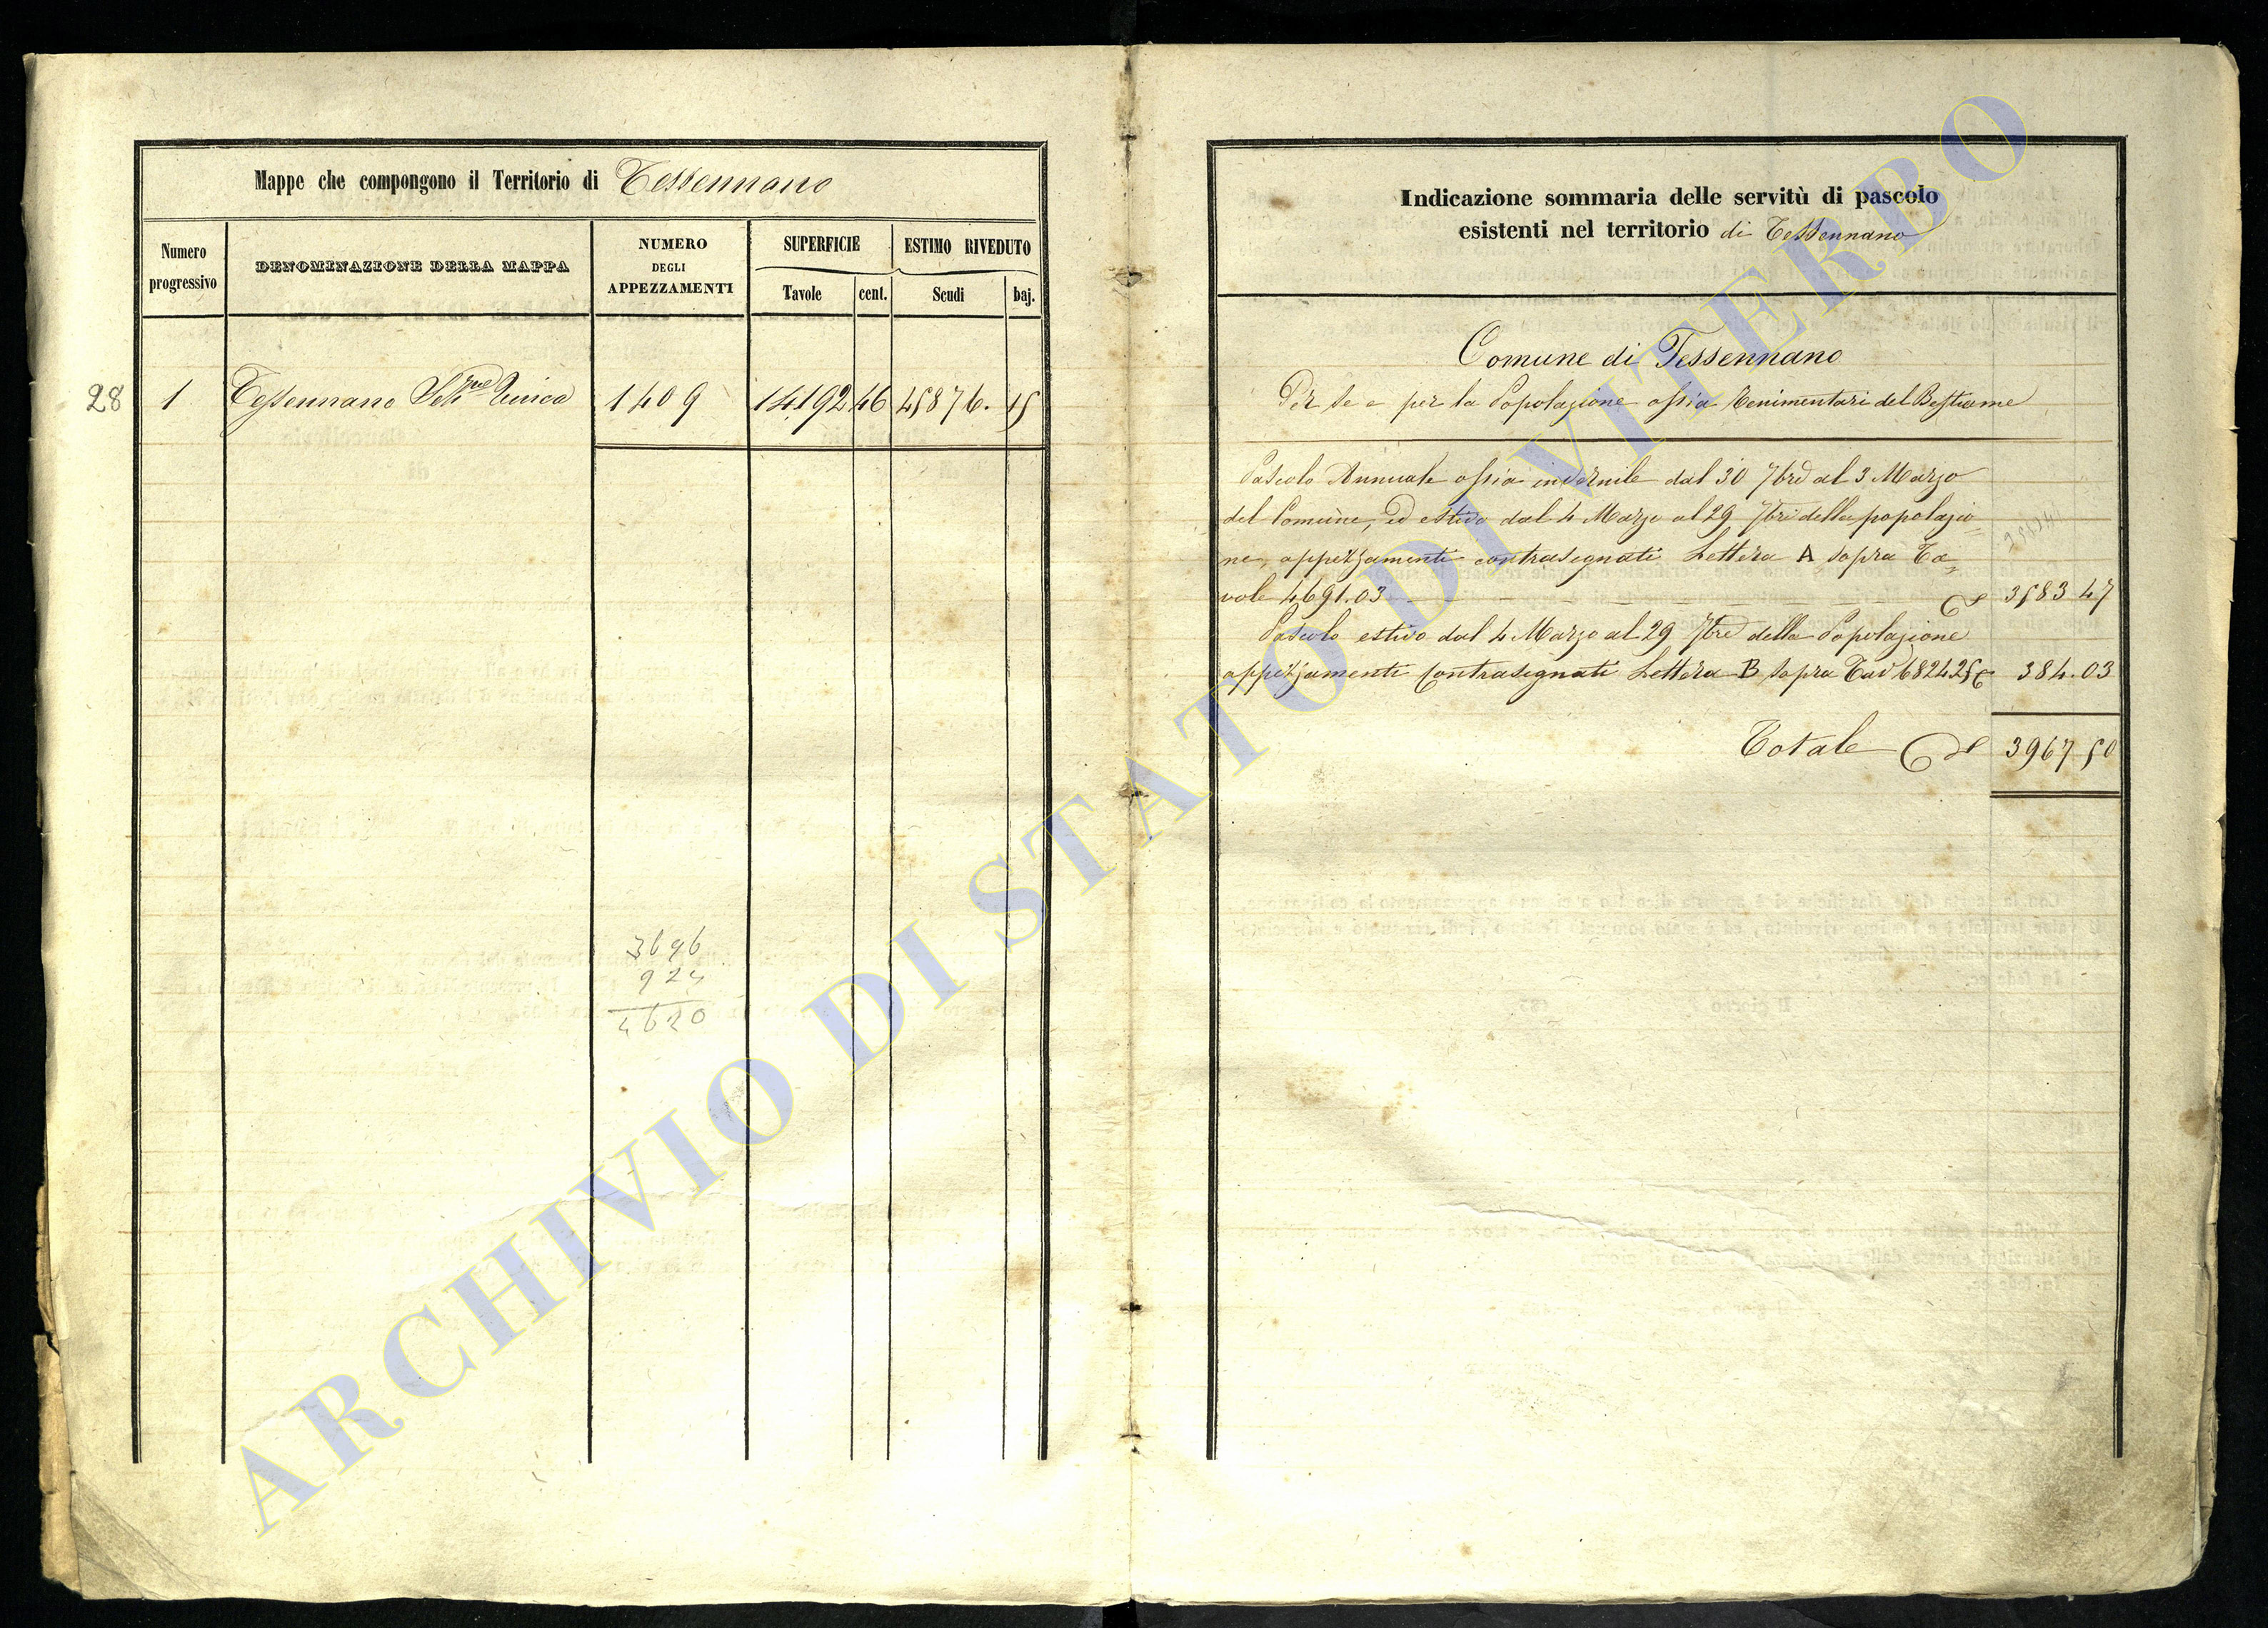 Mappe che compongono il Territorio di Tessennano
Numero progressivo
DENOMINAZIONE DELLA MAPPA
NUMERO DEGLI APPEZZAMENTI
SUPERFICIE
ESTIMO RIVEDUTO
Tavole
cent.
Scudi
baj.
28 1 Tessennano Sez.ne Unica 1409 14192 46 45876. 15
3696
924
4620
Indicazione sommaria delle servitù di pascolo
esistenti nel territorio di Tessennano
Comune di Tessennano
Per se e per la Popolazione ossia Tenimentari del Bestiame
Pascolo Annuale ossia invernile dal 30 7bre al 3 Marzo
del Comune, ed estivo dal 4 Marzo al 29 7bre della popolazio=
ne, appezzamenti contrasegnati Lettera A sopra Ta=
vole 4691.03 3583 47
Pascolo estivo dal 4 Marzo al 29 7bre della Popolazione
appezzamenti contrasegnati Lettera B sopra Tav 384.03
Totale 3967 50
ARCHIVIO DI STATO DI VITERBO